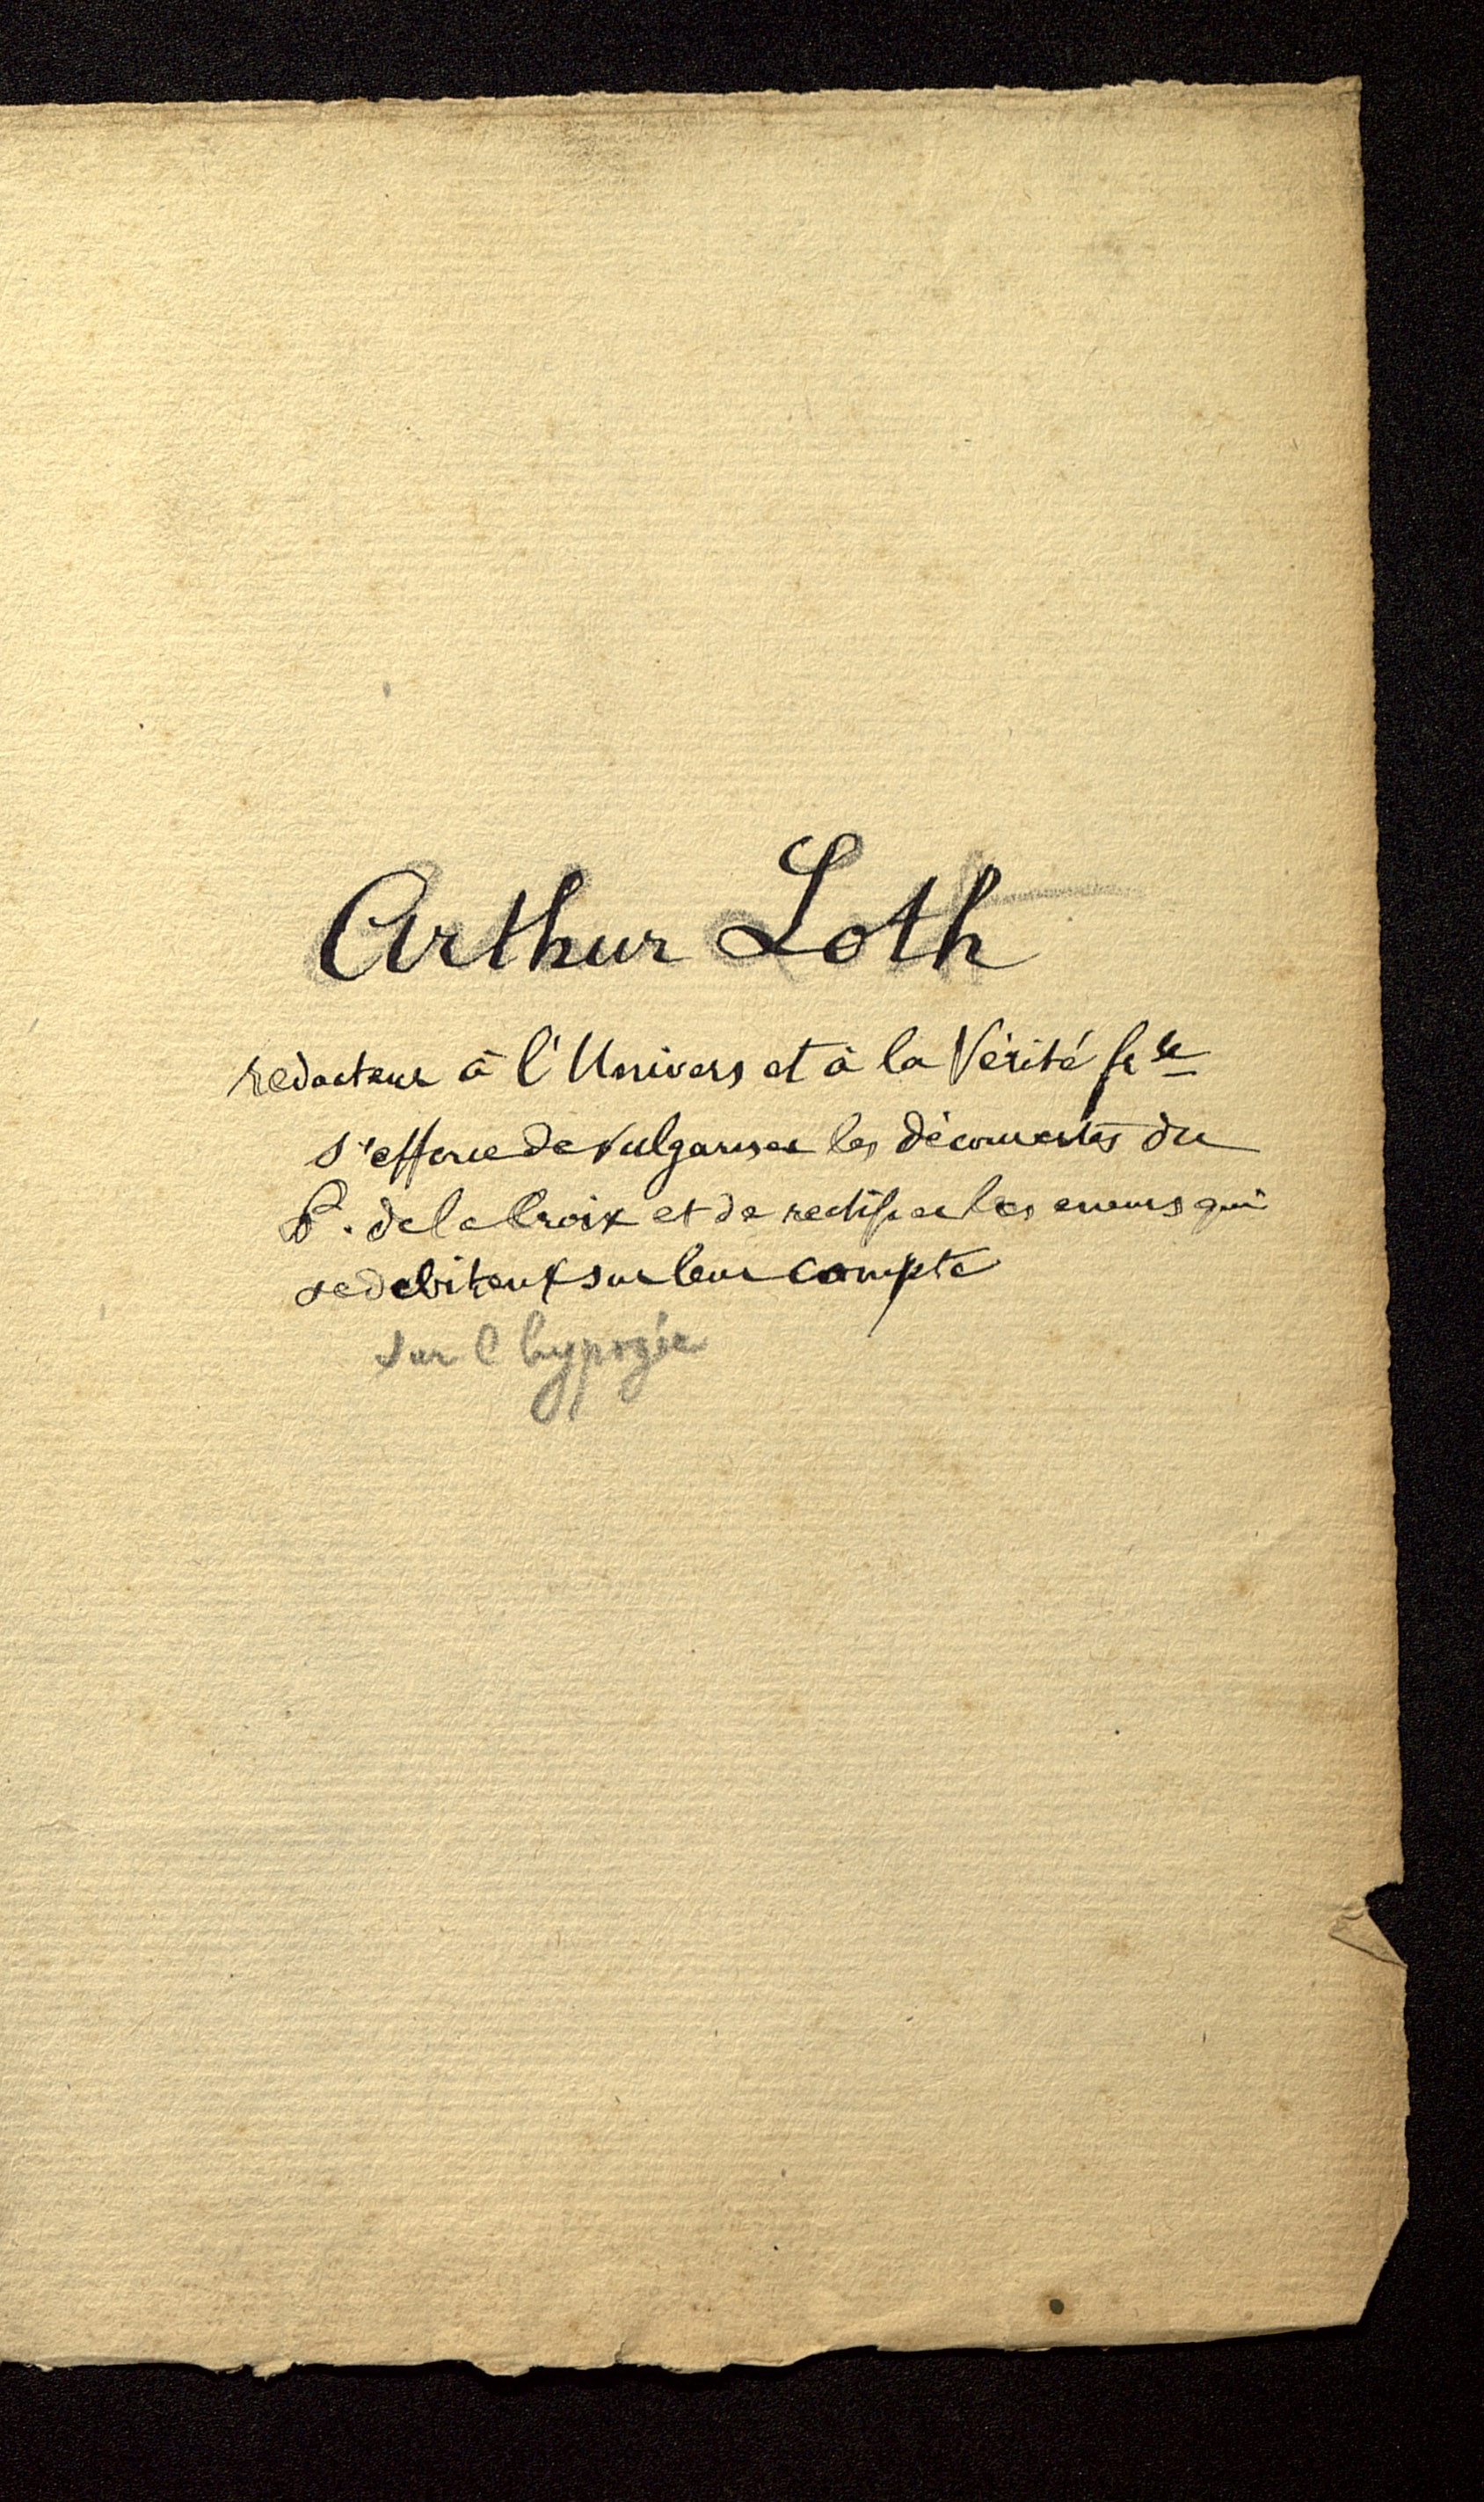 Arthur Loth
redacteur à l'Univers et à la Vérité fse
s'efforce de vulgariser les découvertes du
P. de la Croix et de rectifier les erreurs qui
se debitent sur leur compte
sur l hypogée